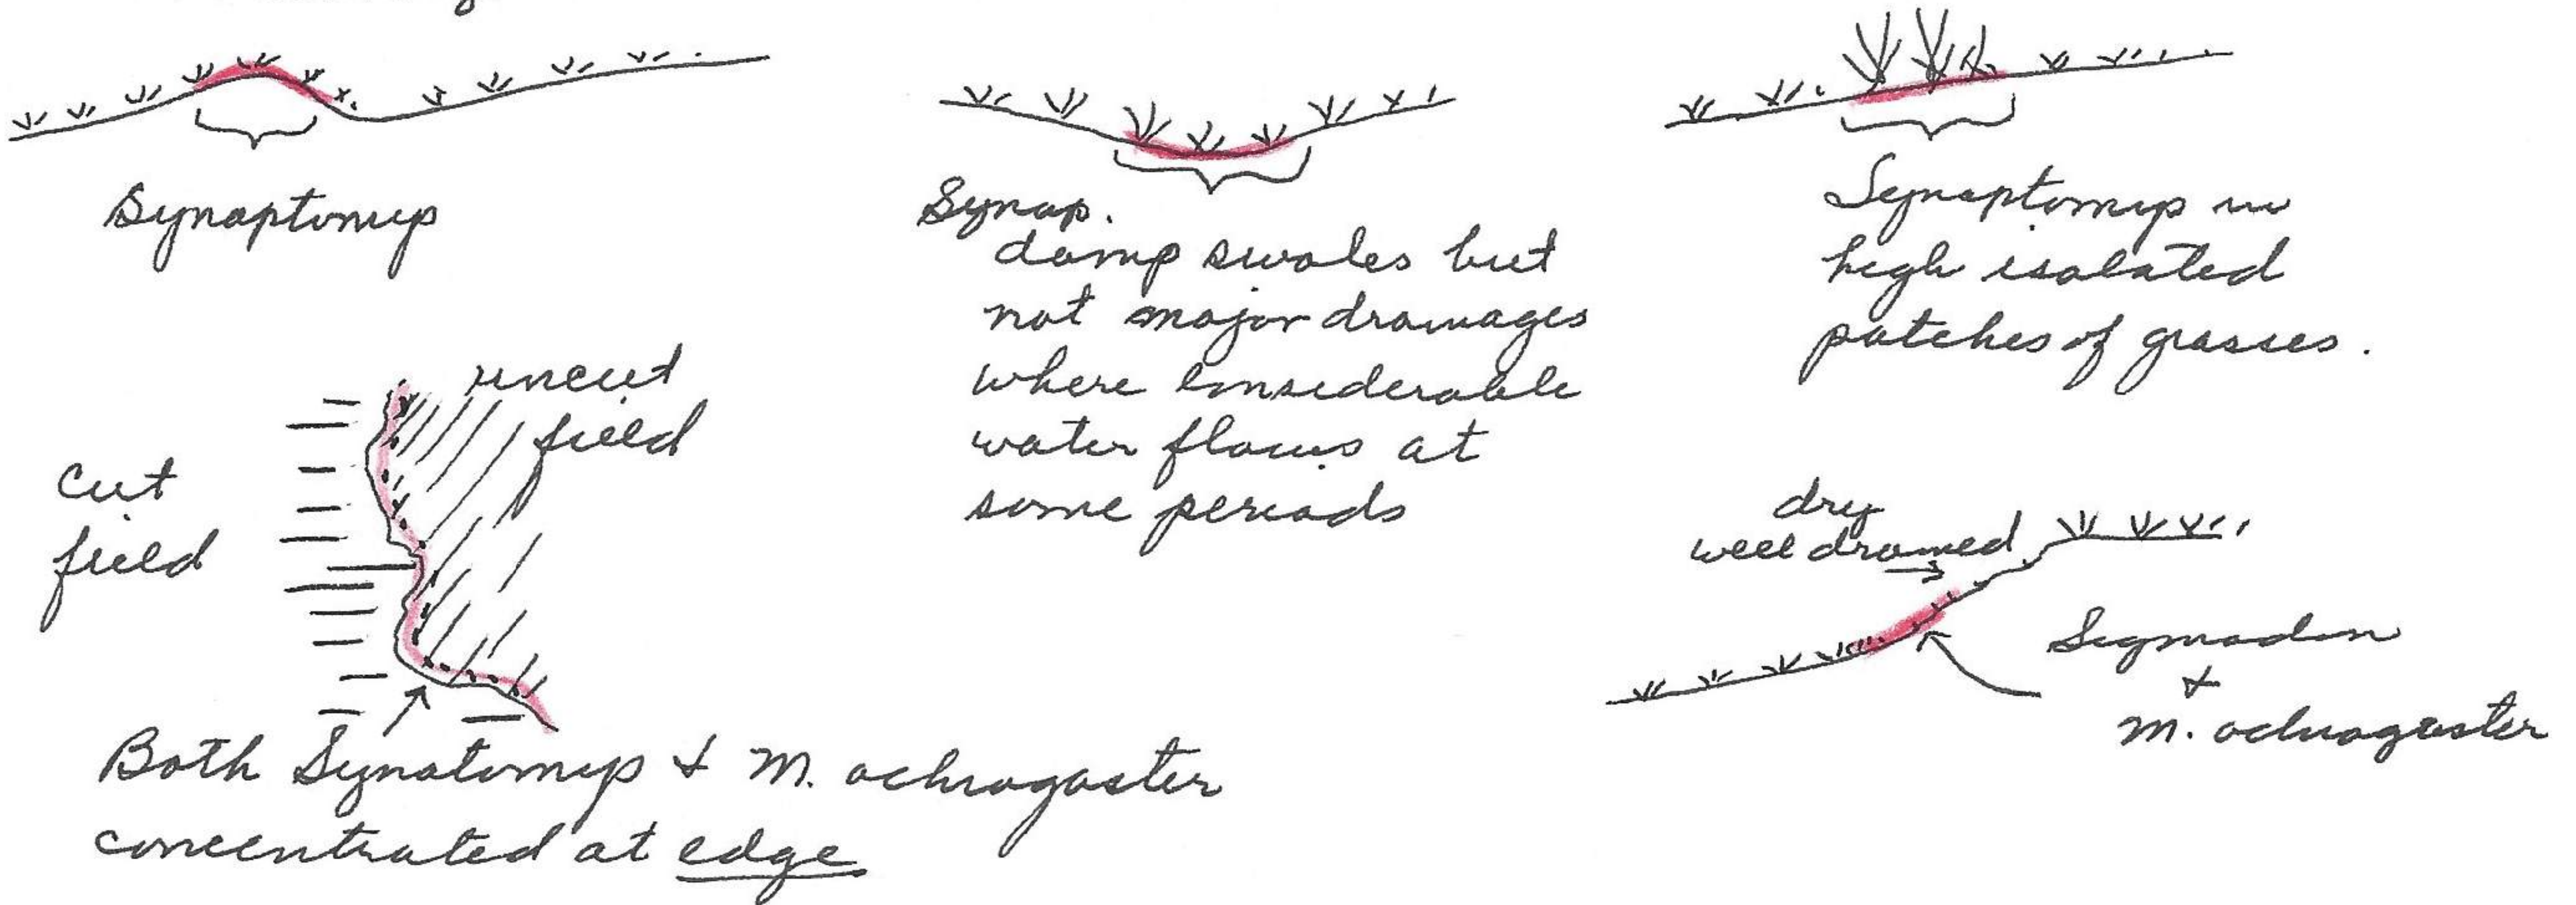 Synaptomys
Synap.
damp swales but
not major drainages
where considerable
water flows at
some periods
Synaptomys in
high isolated
patches of grasses.
uncut
field
cut
field
Both Synatomys & M. ochrogaster
concentrated at edge
dry
well drained
Sigmodon
&
M. ochrogaster